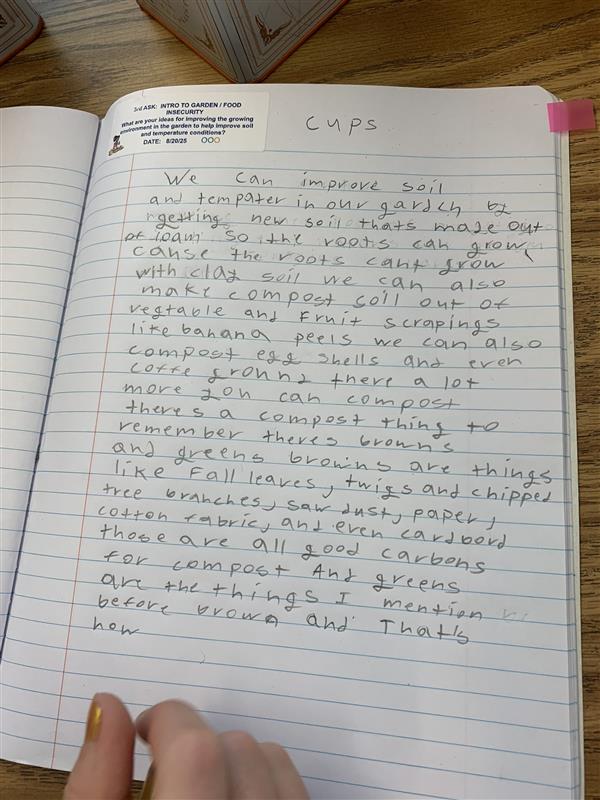 3rd ASK: INTRO TO GARDEN / FOOD
INSECURITY
What are your ideas for improving the growing
environment in the garden to help improve soil
and temperature conditions?
DATE: 8/20/25
cups
We can improve soil
and tempater in our garden by
getting new soil thats made out
of loam so the roots can grow
cause the roots cant grow
with clay soil we can also
make compost soil out of
vegtable and fruit scrapings
like banana peels we can also
compost egg shells and even
coffe grounz there a lot
more you can compost
there's a compost thing to
remember theres browns
and greens browns are things
like Fall leaves, twigs and chipped
tree branches, saw dust, paper,
cotton fabric, and even cardbord
those are all good carbons
for compost And greens
are the things I mention
before brown and That's
how